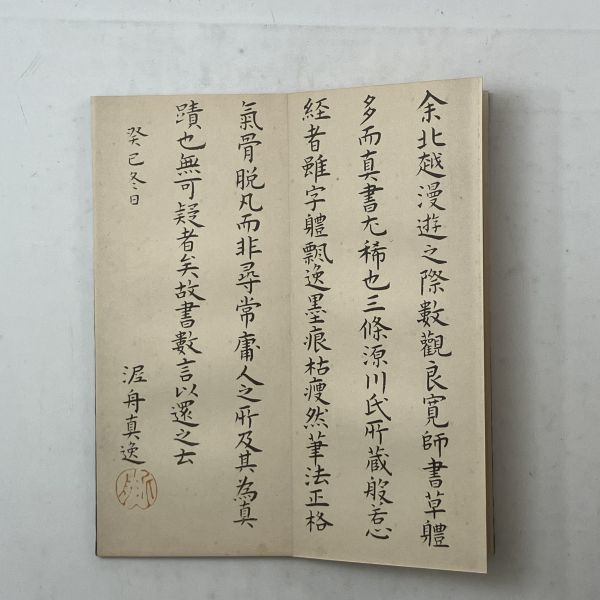 余北越漫遊之際數觀良寬師書草軆
多而真書尤稀也三條源川氏所蔵般若心
経者雖字軆飄逸墨痕枯瘦然筆法正格
氣骨脱凡而非尋常庸人之所及其為真
蹟也無可疑者矣故書數言以還之云
癸巳冬日
渥舟真逸